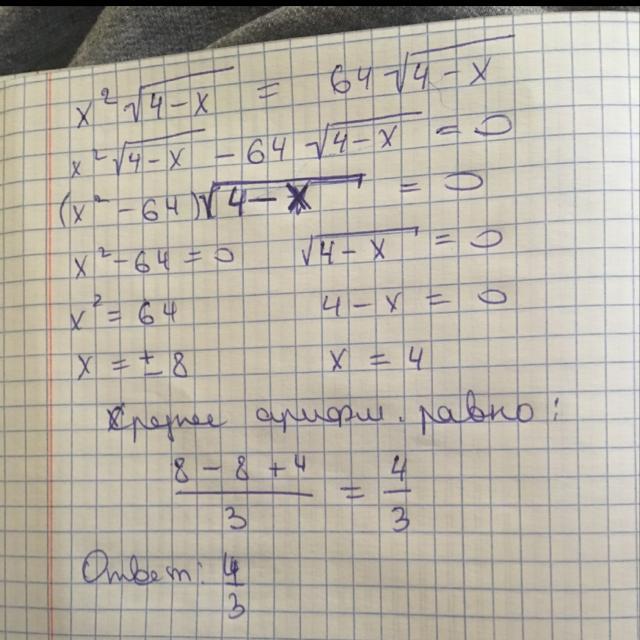 x² √(4-x) = 64 √(4-x)
x² √(4-x) - 64 √(4-x) = 0
(x² - 64) √(4-x) = 0
x² - 64 = 0 √(4-x) = 0
x² = 64 4 - x = 0
x = ± 8 x = 4
Среднее арифм. равно:
(8 - 8 + 4)/3 = 4/3
Ответ: 4/3